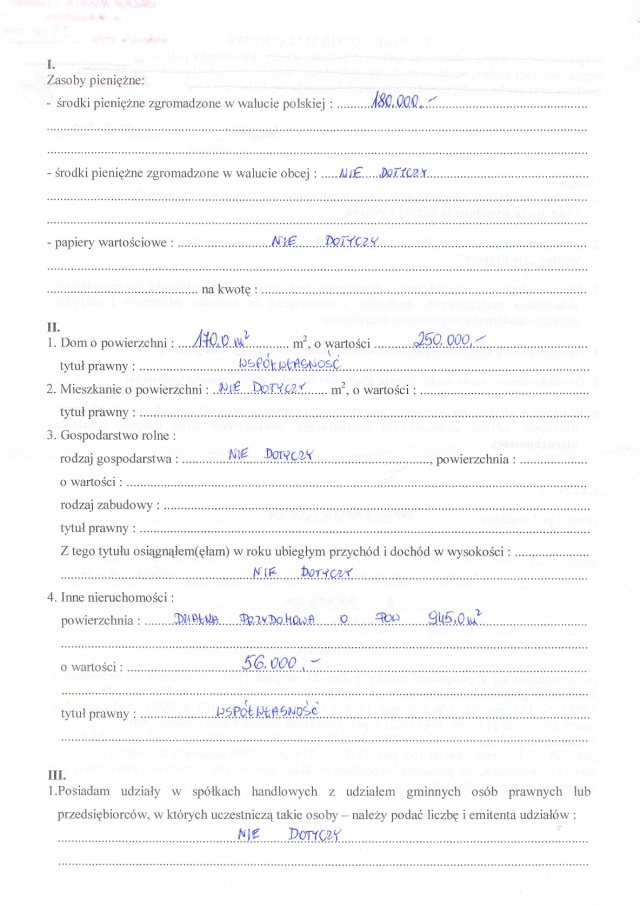 I.
Zasoby pieniężne:
- środki pieniężne zgromadzone w walucie polskiej : ........180.000,-........
........
- środki pieniężne zgromadzone w walucie obcej : ........NIE DOTYCZY........
........
........
- papiery wartościowe : ........NIE DOTYCZY........
........
........ na kwotę : ........
II.
1. Dom o powierzchni : ....170.0 m²........ m², o wartości ........250.000,-........
tytuł prawny : ........WSPÓŁWŁASNOŚĆ........
2. Mieszkanie o powierzchni : ..NIE DOTYCZY...... m², o wartości : ........
tytuł prawny : ........
3. Gospodarstwo rolne :
rodzaj gospodarstwa : ........NIE DOTYCZY........, powierzchnia : ........
o wartości : ........
rodzaj zabudowy : ........
tytuł prawny : ........
Z tego tytułu osiągnąłem(ęłam) w roku ubiegłym przychód i dochód w wysokości : ........
........NIE DOTYCZY........
4. Inne nieruchomości :
powierzchnia : ........DZIAŁKA PRZYDOMOWA O POW 945.0 m²
........
o wartości : ........56.000,-........
........
tytuł prawny : ........WSPÓŁWŁASNOŚĆ........
........
III.
1.Posiadam udziały w spółkach handlowych z udziałem gminnych osób prawnych lub
przedsiębiorców, w których uczestniczą takie osoby – należy podać liczbę i emitenta udziałów :
........NIE DOTYCZY........
........